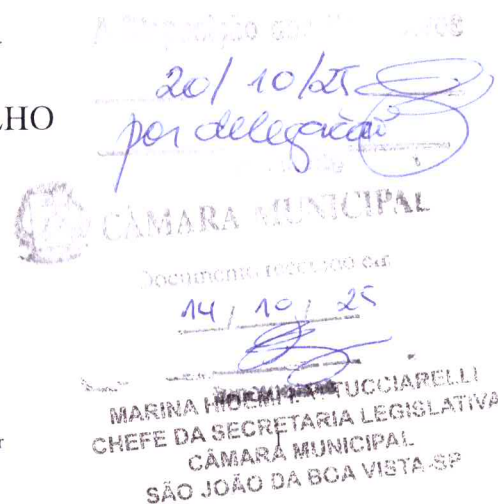 À Disposição dos
20/10/25
LHO
por delegação
CÂMARA MUNICIPAL
Documento recebido em
14/10/25
MARINA TUCCIARELLI
CHEFE DA SECRETARIA LEGISLATIVA
CÂMARA MUNICIPAL
SÃO JOÃO DA BOA VISTA-SP